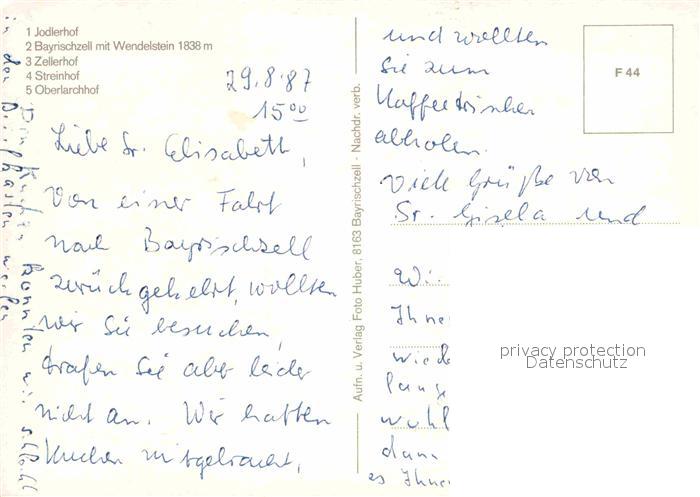 1 Jodlerhof
2 Bayrischzell mit Wendelstein 1838 m
3 Zellerhof
4 Streinhof
5 Oberlarchhof
29.8.87
15⁰⁰
Liebe Sr. Elisabeth,
Von einer Fahrt
nach Bayrischzell
zurückgekehrt, wollten
wir Sie besuchen,
trafen Sie aber leider
nicht an. Wir hatten
Kuchen mitgebracht,
und wollten
Sie zum
Kaffeetrinken
abholen.
Viele Grüße von
Sr. Gisela und
Wi
Ihne
wiede
lange
wohl
dann
es Ihne
Den Kuchen konnten wir schlecht
in den Briefkasten werfen
Aufn. u. Verlag Foto Huber, 8163 Bayrischzell - Nachdr. verb.
F 44
privacy protection
Datenschutz